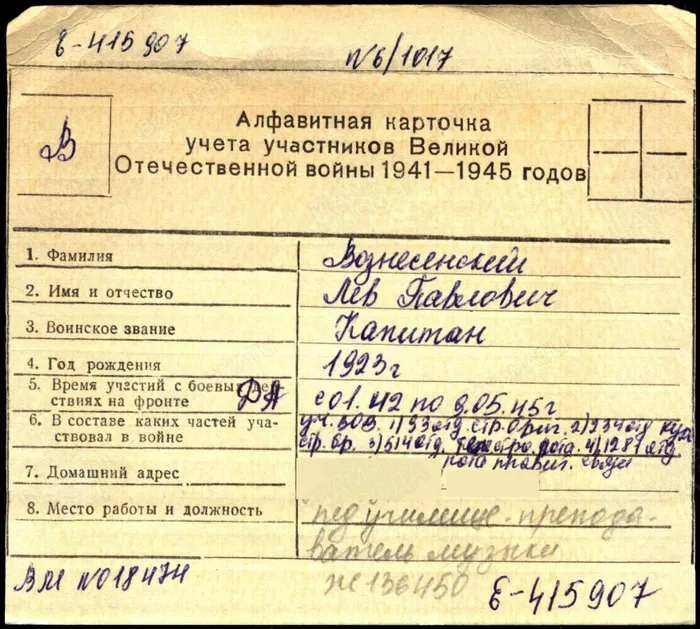 Е-415907
N6/1017
В
Алфавитная карточка
учета участников Великой
Отечественной войны 1941—1945 годов
1. Фамилия Вознесенский
2. Имя и отчество Лев Павлович
3. Воинское звание Капитан
4. Год рождения 1923г
5. Время участий с боевых действиях на фронте ДА с 01.42 по 9.05.45г
6. В составе каких частей участвовал в войне уч. ВОВ. 1) 93 отд. стр. бриг. 2) 234 отд
стр. бр. 3) 514 отд. рота. 4) 1281 отд
рота правит. связи
7. Домашний адрес
8. Место работы и должность педучилище-препода-
ватель музыки
ВМ N018474
Ж136450
Е-415907